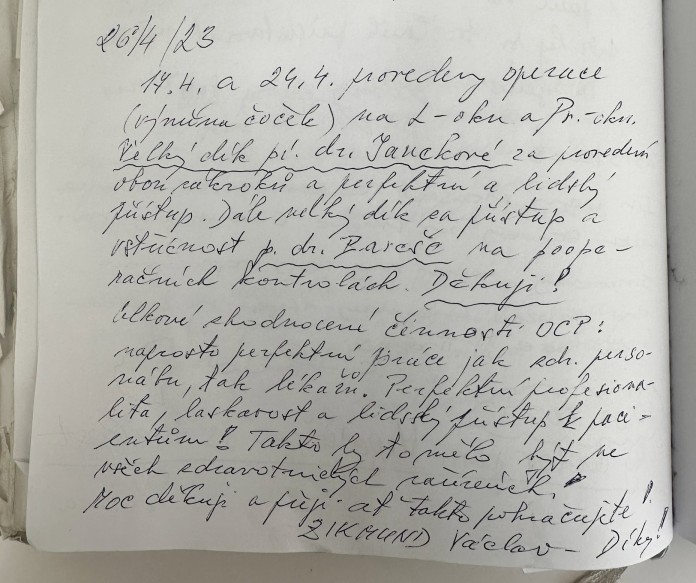 26/4/23
17.4. a 24.4. provedeny operace
(výměna čoček) na L-oku a Pr.-oku.
Velký dík pí. dr. Janečkové za provedení
obou zákroků a perfektní a lidský
přístup. Dále velký dík za přístup a
vstřícnost p. dr. Bareše na poope-
račních kontrolách. Děkuji!
Celkové zhodnocení činnosti OCP:
naprosto perfektní práce jak zdr. perso-
nálu, tak lékařů. Perfektní profesiona-
lita, laskavost a lidský přístup k paci-
entům! Takto by to mělo být ve
všech zdravotnických zařízeních!
Moc děkuji a přeji ať takto pokračujete!
ZIKMUND Václav - Díky!